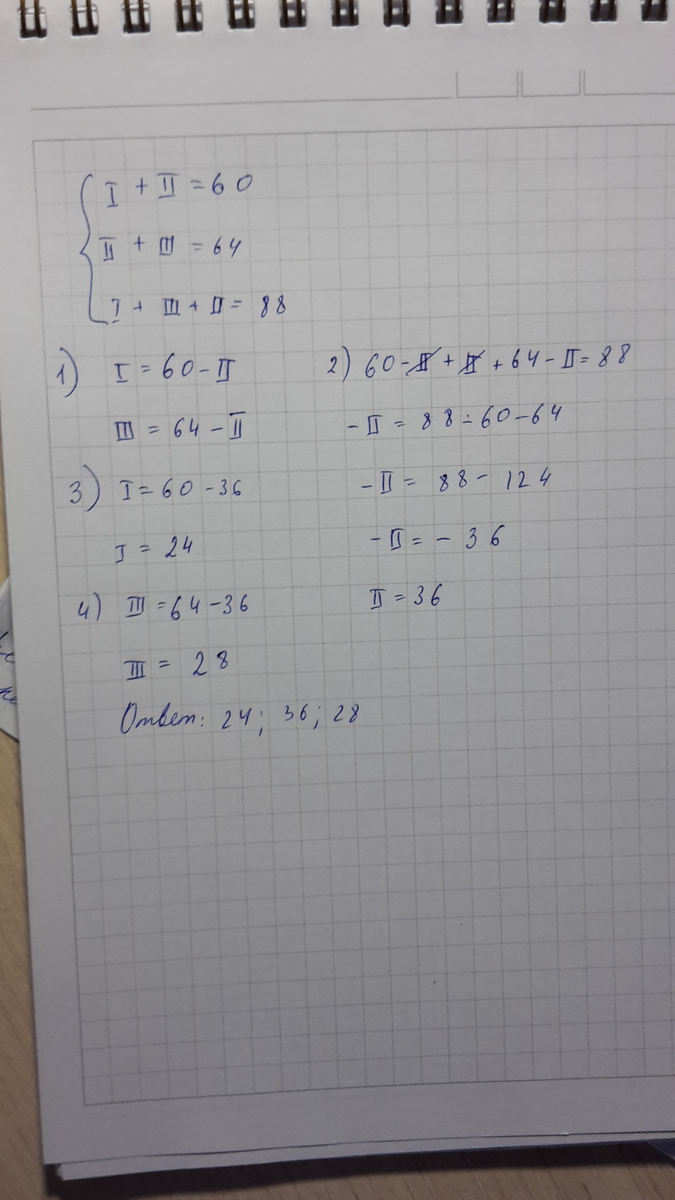 I + II = 60
II + III = 64
I + III + II = 88
1) I = 60 - II
III = 64 - II
2) 60 - II + II + 64 - II = 88
- II = 88 - 60 - 64
- II = 88 - 124
- II = - 36
II = 36
3) I = 60 - 36
I = 24
4) III = 64 - 36
III = 28
Ответ: 24; 36; 28